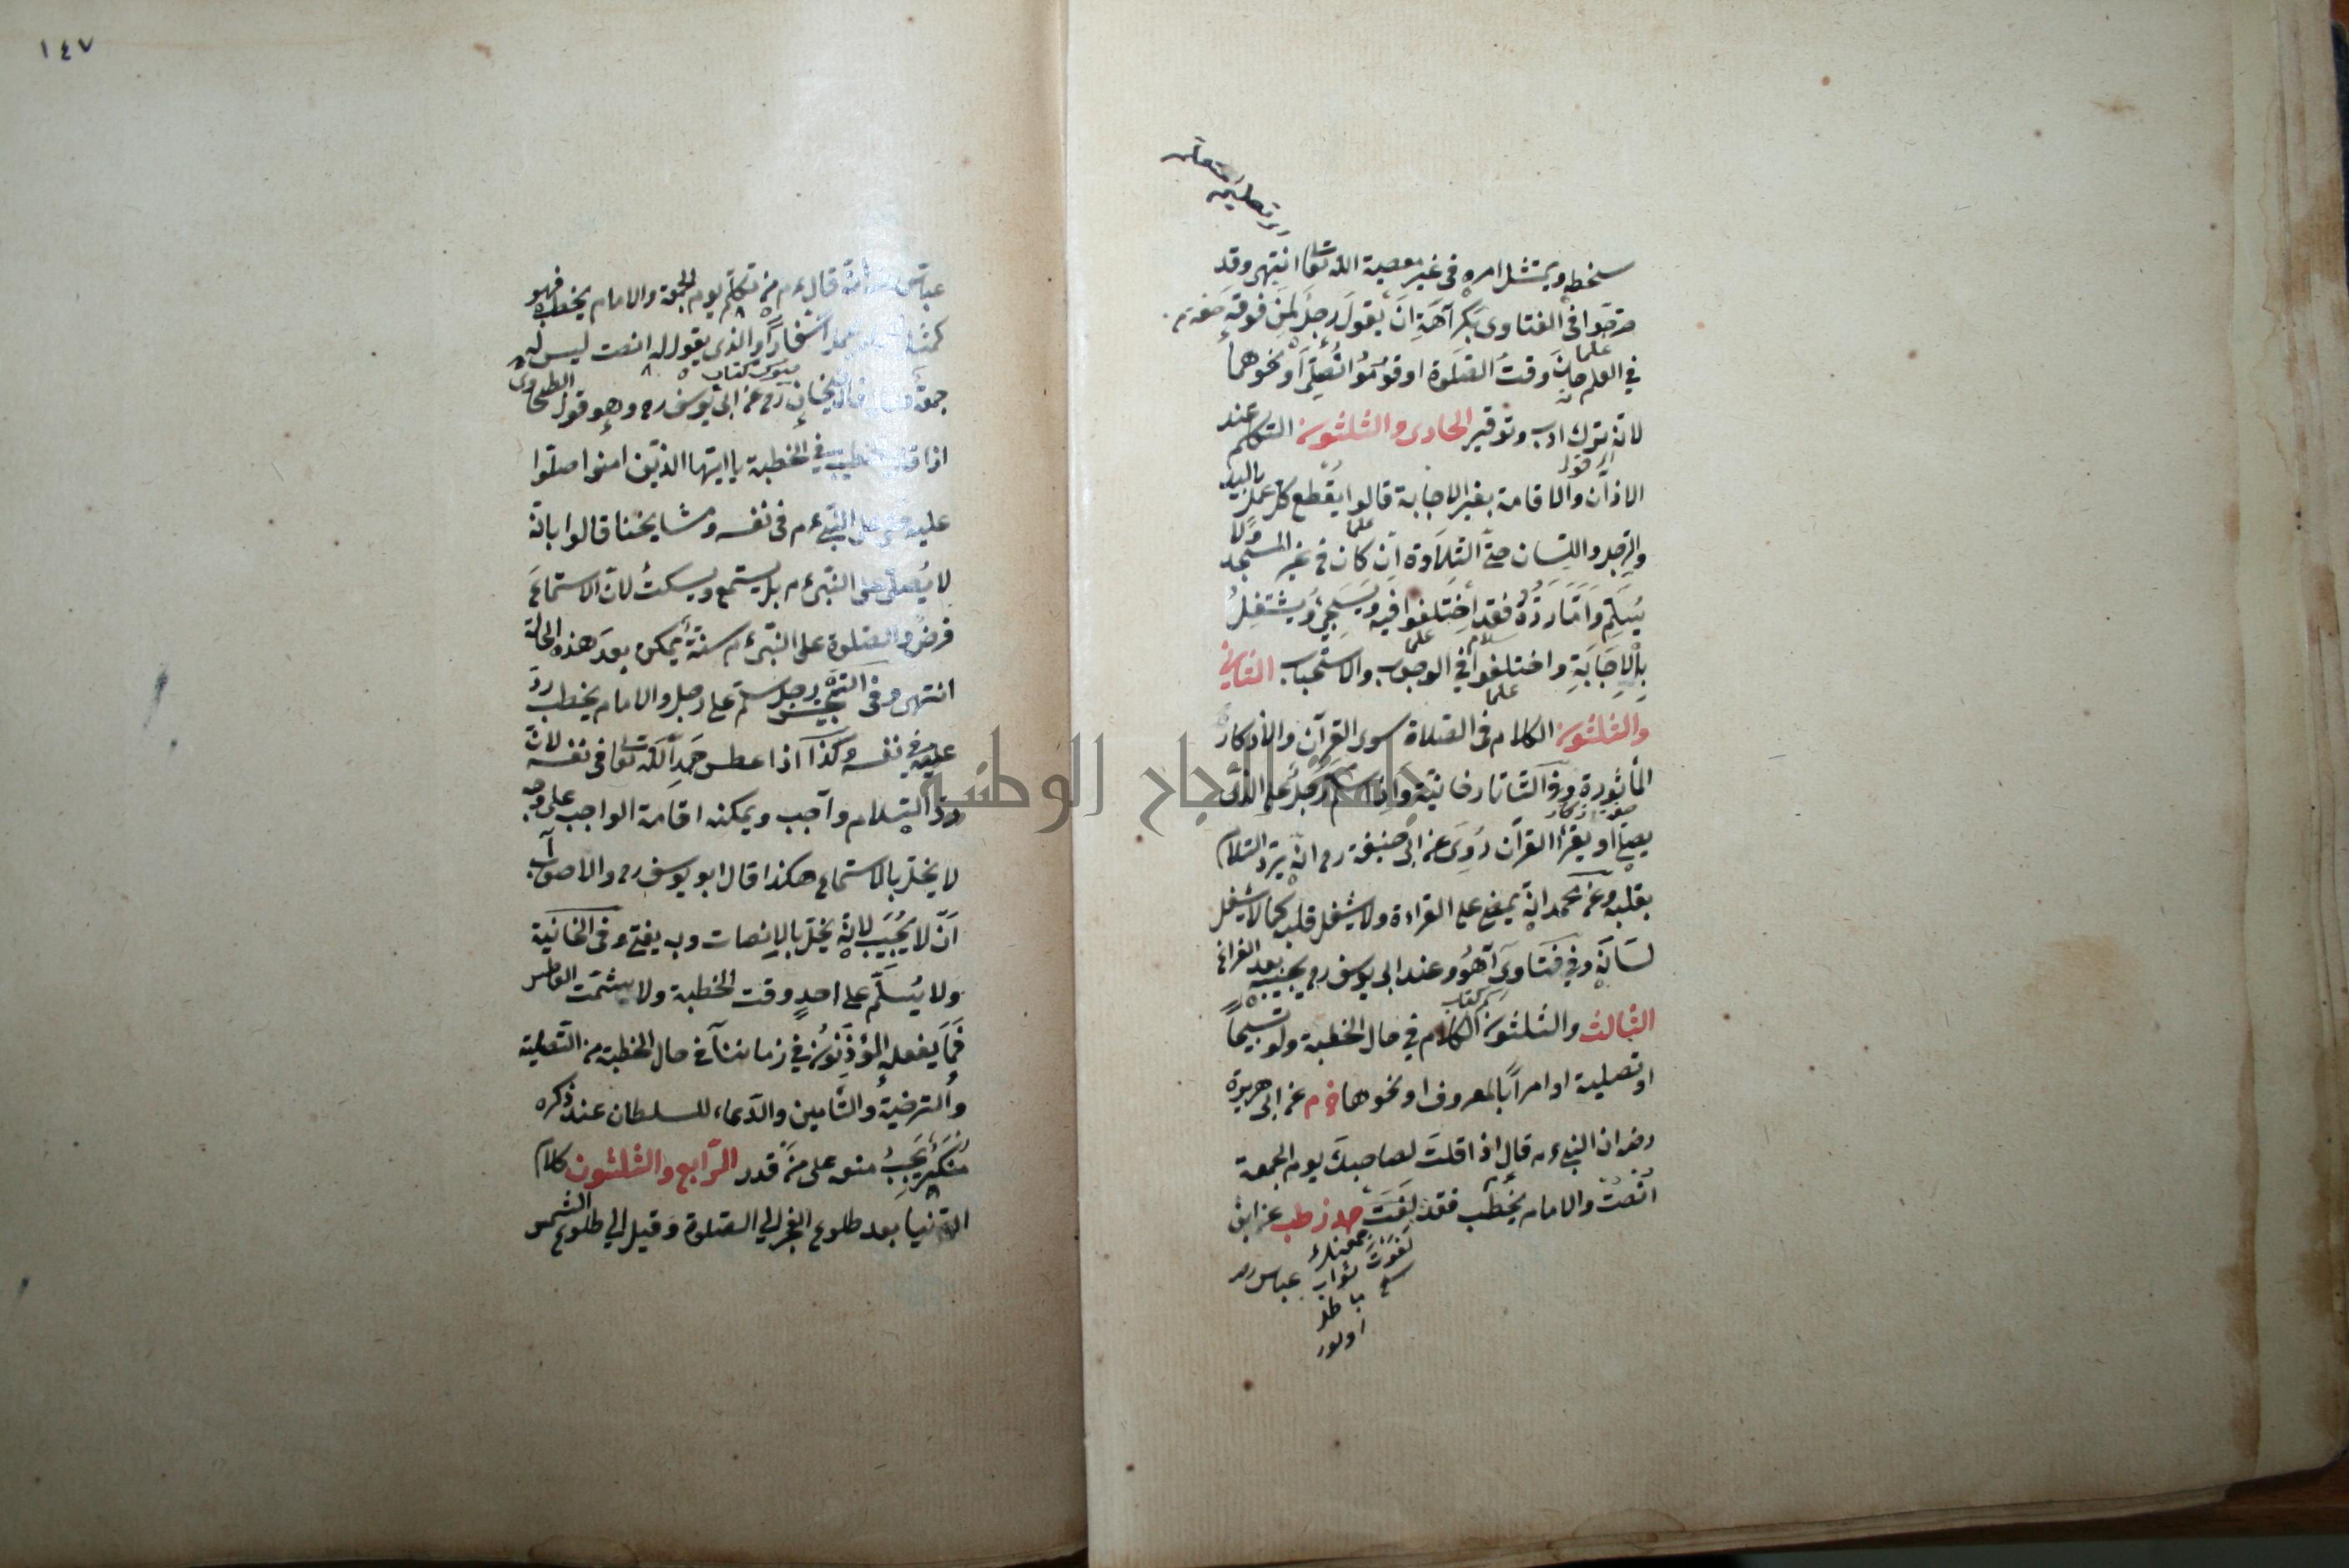 سخطه ويمتثل امره في غير معصية الله تعا انتهى وقد
صرحوا في الفتاوى بكراهة ان يقول رجل لمن فوقه
في العلم حان وقت الصلوة او قوموا نصلى او نحوهما
علما
لانه ترك ادب وتوقير الحادى والثلثون التكلم عند
الاذان والاقامة بغير الاجابة قالوا يقطع كل عمل باليد
والرجل واللسان حتى التلاوة ان كان في غير المسجد ولا
علما
يسلم واما رده فقد اختلفوا فيه ويشتغل
بالاجابة واختلفوا في الوجوب والاستحباب الثاني
سلام علما
والثلثون الكلام في الصلاة سوى القرآن والاذكار
علما
المأثورة وفي التاتارخانية واذا سلم رجل على الذى
يصلى او يقرأ القرآن روى عن ابى حنيفة رح انه يرد السلام
بقلبه وعن محمد انه يمضى على القراءة ولا يشغل قلبه كما لا يشغل
لسانه وفي فتاوى آهو وعند ابى يوسف رح يجيبه بعد الفراغ
الثالث والثلثون الكلام في حال الخطبة ولو تسبيحا
او تصلية او امرا بالمعروف او نحوها خ م عن ابى هريرة
رضه ان النبى ءم قال اذا قلت لصاحبك يوم الجمعة
انصت والامام يخطب فقد لغوت حد ز طب عن ابن
عباس رضه
ثواب
باطل
اولور
١٤٧
قال ءم من تكلم يوم الجمعة والامام يخطب فهو
اسفارا والذى يقول له انصت ليس له
جمعة عن ابى يوسف رح وهو قول الطحاوى
اذا قال الخطيب في الخطبة يا ايها الذين امنوا صلوا
عليه النبى ءم في نفسه ومشايخنا قالوا بانه
لا يصلى على النبى ءم بل يستمع ويسكت لان الاستماع
فرض والصلوة على النبى ءم سنة يمكن بعد هذه الحالة
انتهى وفي التجنيس رجل سلم على رجل والامام يخطب رد
عليه في نفسه وكذا اذا عطس حمد الله تعا في نفسه لان
رد السلام واجب ويمكنه اقامة الواجب على وجه
لا يخل بالاستماع هكذا قال ابو يوسف رح والاصوب
ان لا يجيب لانه يخل بالانصات وبه يفتى وفي الخانية
ولا يسلم على احد وقت الخطبة ولا يشمت العاطس
فما يفعله المؤذنون في زماننا في حال الخطبة من التصلية
والترضية والتامين والدعاء للسلطان عند ذكره
منكر يجب منعه على من قدر الرابع والثلثون كلام
الدنيا بعد طلوع الفجر الى الصلوة وقيل الى طلوع الشمس
جامعة النجاح الوطنية